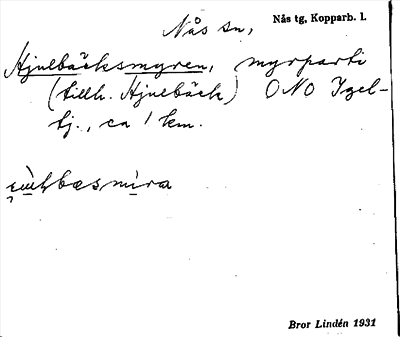 Nås sn,
Nås tg, Kopparb. l.
Hjulbäcksmyren, myrparti
(tillh. Hjulbäck) ONO Igel-
tj., ca 1 km.
Bror Lindén 1931